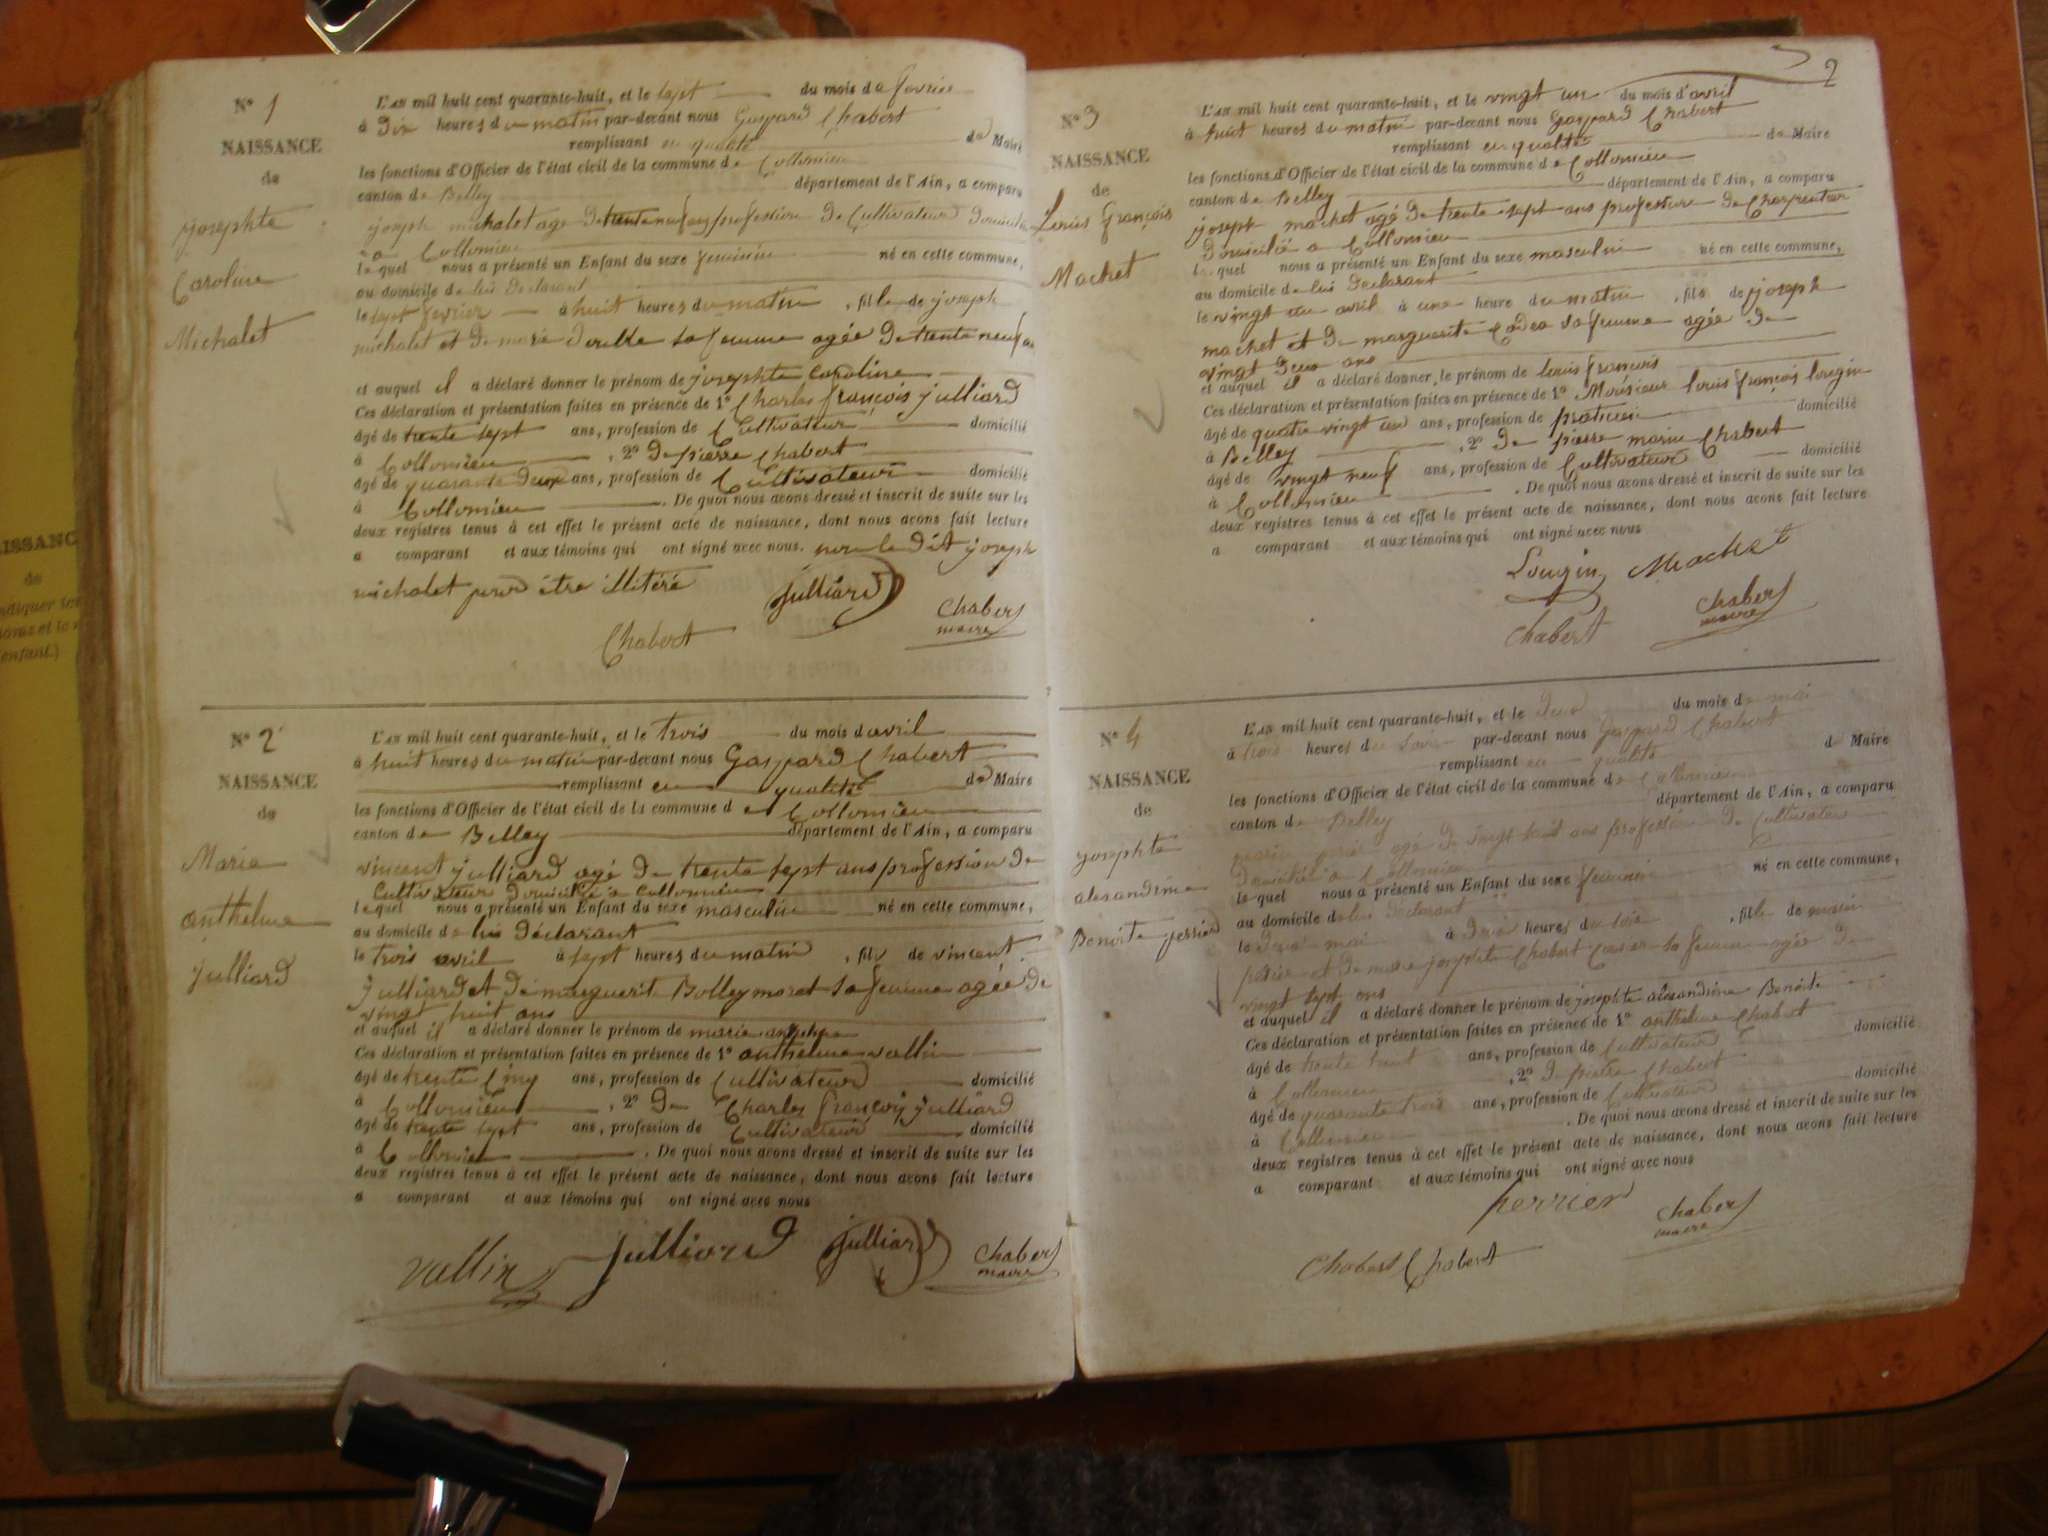 N° 1
NAISSANCE
de
josephte
Caroline
Michalet
L'AN mil huit cent quarante-huit, et le sept du mois de fevrier
à Dix heures du matin par-devant nous Gaspard Chabert
remplissant en qualité de Maire
les fonctions d'Officier de l'état civil de la commune de Collomieu
canton de Belley département de l'Ain, a comparu
joseph michalet agé de trente neuf ans profession de Cultivateur
a Collomieu
lequel nous a présenté un Enfant du sexe feminin né en cette commune,
au domicile de lui declarant
le sept fevrier à huit heures du matin, fille de joseph
michalet et de marie sa femme agée de trente neuf ans
et auquel il a déclaré donner le prénom de josephte caroline
Ces déclaration et présentation faites en présence de 1° Charles françois julliard
âgé de trente sept ans, profession de Cultivateur domicilié
à Collomieu, 2° De pierre Chabert
âgé de quarante deux ans, profession de Cultivateur domicilié
à Collomieu. De quoi nous avons dressé et inscrit de suite sur les
deux registres tenus à cet effet le présent acte de naissance, dont nous avons fait lecture
a comparant et aux témoins qui ont signé avec nous. non le dit joseph
michalet pour être illitéré
julliard
Chabert
Chabert
maire
N° 2
NAISSANCE
de
Marie
anthelme
julliard
L'AN mil huit cent quarante-huit, et le trois du mois d'avril
à huit heures du matin par-devant nous Gaspard Chabert
remplissant en qualité de Maire
les fonctions d'Officier de l'état civil de la commune de Collomieu
canton de Belley département de l'Ain, a comparu
vincent julliard agé de trente sept ans profession de
Cultivateur Domicilié a Collomieu
lequel nous a présenté un Enfant du sexe masculin né en cette commune,
au domicile de lui déclarant
le trois avril à sept heures du matin, fils de vincent
julliard et de marguerit Bolleymoret sa femme agée de
vingt huit ans
et auquel il a déclaré donner le prénom de marie anthelme
Ces déclaration et présentation faites en présence de 1° anthelme vallin
âgé de trente Cinq ans, profession de Cultivateur domicilié
à Collomieu, 2° De Charles françois julliard
âgé de trente sept ans, profession de Cultivateur domicilié
à Collomieu. De quoi nous avons dressé et inscrit de suite sur les
deux registres tenus à cet effet le présent acte de naissance, dont nous avons fait lecture
a comparant et aux témoins qui ont signé avec nous
vallin julliard julliard Chabert
maire
2
N° 3
NAISSANCE
de
Louis françois
Machet
L'AN mil huit cent quarante-huit, et le vingt un du mois d'avril
à huit heures du matin par-devant nous Gaspard Chabert
remplissant en qualité de Maire
les fonctions d'Officier de l'état civil de la commune de Collomieu
canton de Belley département de l'Ain, a comparu
joseph machet agé de trente sept ans profession de Charpentier
Domicilié a Collomieu
lequel nous a présenté un Enfant du sexe masculin né en cette commune,
au domicile de lui declarant
le vingt un avril à une heure du matin, fils de joseph
machet et de marguerite sa femme agée de
vingt deux ans
et auquel il a déclaré donner le prénom de louis francois
Ces déclaration et présentation faites en présence de 1° Monsieur louis françois lougin
âgé de quatre vingt un ans, profession de praticien domicilié
à Belley, 2° De pierre marin Chabert
âgé de vingt neuf ans, profession de Cultivateur domicilié
à Collomieu. De quoi nous avons dressé et inscrit de suite sur les
deux registres tenus à cet effet le présent acte de naissance, dont nous avons fait lecture
a comparant et aux témoins qui ont signé avec nous
Lougin Machet
Chabert
Chabert
maire
N° 4
NAISSANCE
de
josephte
alexandrine
Benoite perrier
L'AN mil huit cent quarante-huit, et le deux du mois de mai
à trois heures du soir par-devant nous Gaspard Chabert
remplissant en qualité de Maire
les fonctions d'Officier de l'état civil de la commune de Collomieu
canton de Belley département de l'Ain, a comparu
marin perrier agé de vingt huit ans profession de Cultivateur
Domicilié a Collomieu
lequel nous a présenté un Enfant du sexe feminin né en cette commune,
au domicile de lui declarant
le deux mai à heures du soir, fille de marin
et de marie josephte Chabert sa femme agée de
vingt sept ans
et auquel il a déclaré donner le prénom de josephte alexandrine Benoite
Ces déclaration et présentation faites en présence de 1° anthelme Chabert
âgé de trente huit ans, profession de Cultivateur domicilié
à Collomieu, 2° De pierre Chabert
âgé de quarante trois ans, profession de Cultivateur domicilié
à Collomieu. De quoi nous avons dressé et inscrit de suite sur les
deux registres tenus à cet effet le présent acte de naissance, dont nous avons fait lecture
a comparant et aux témoins qui ont signé avec nous
perrier
Chabert
maire
Chabert Chabert